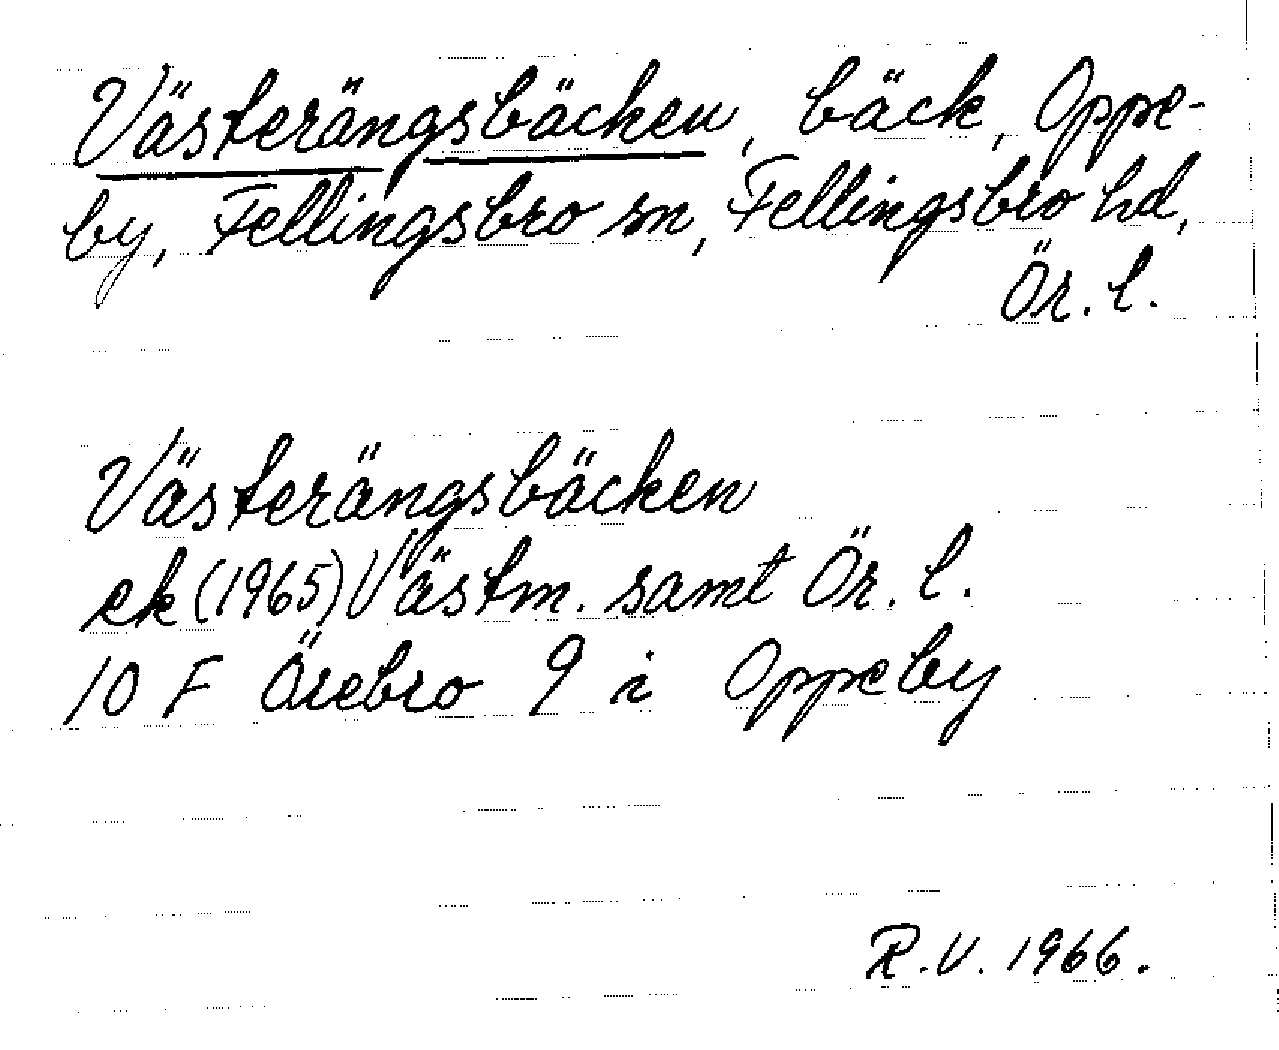 Västerängsbäcken, bäck, Oppe-
by, Fellingsbro sn, Fellingsbro hd,
Ör. l.
Västerängsbäcken
ek (1965) Västm. samt Ör. l.
10 F Örebro 9 i Oppeby
R.V. 1966.